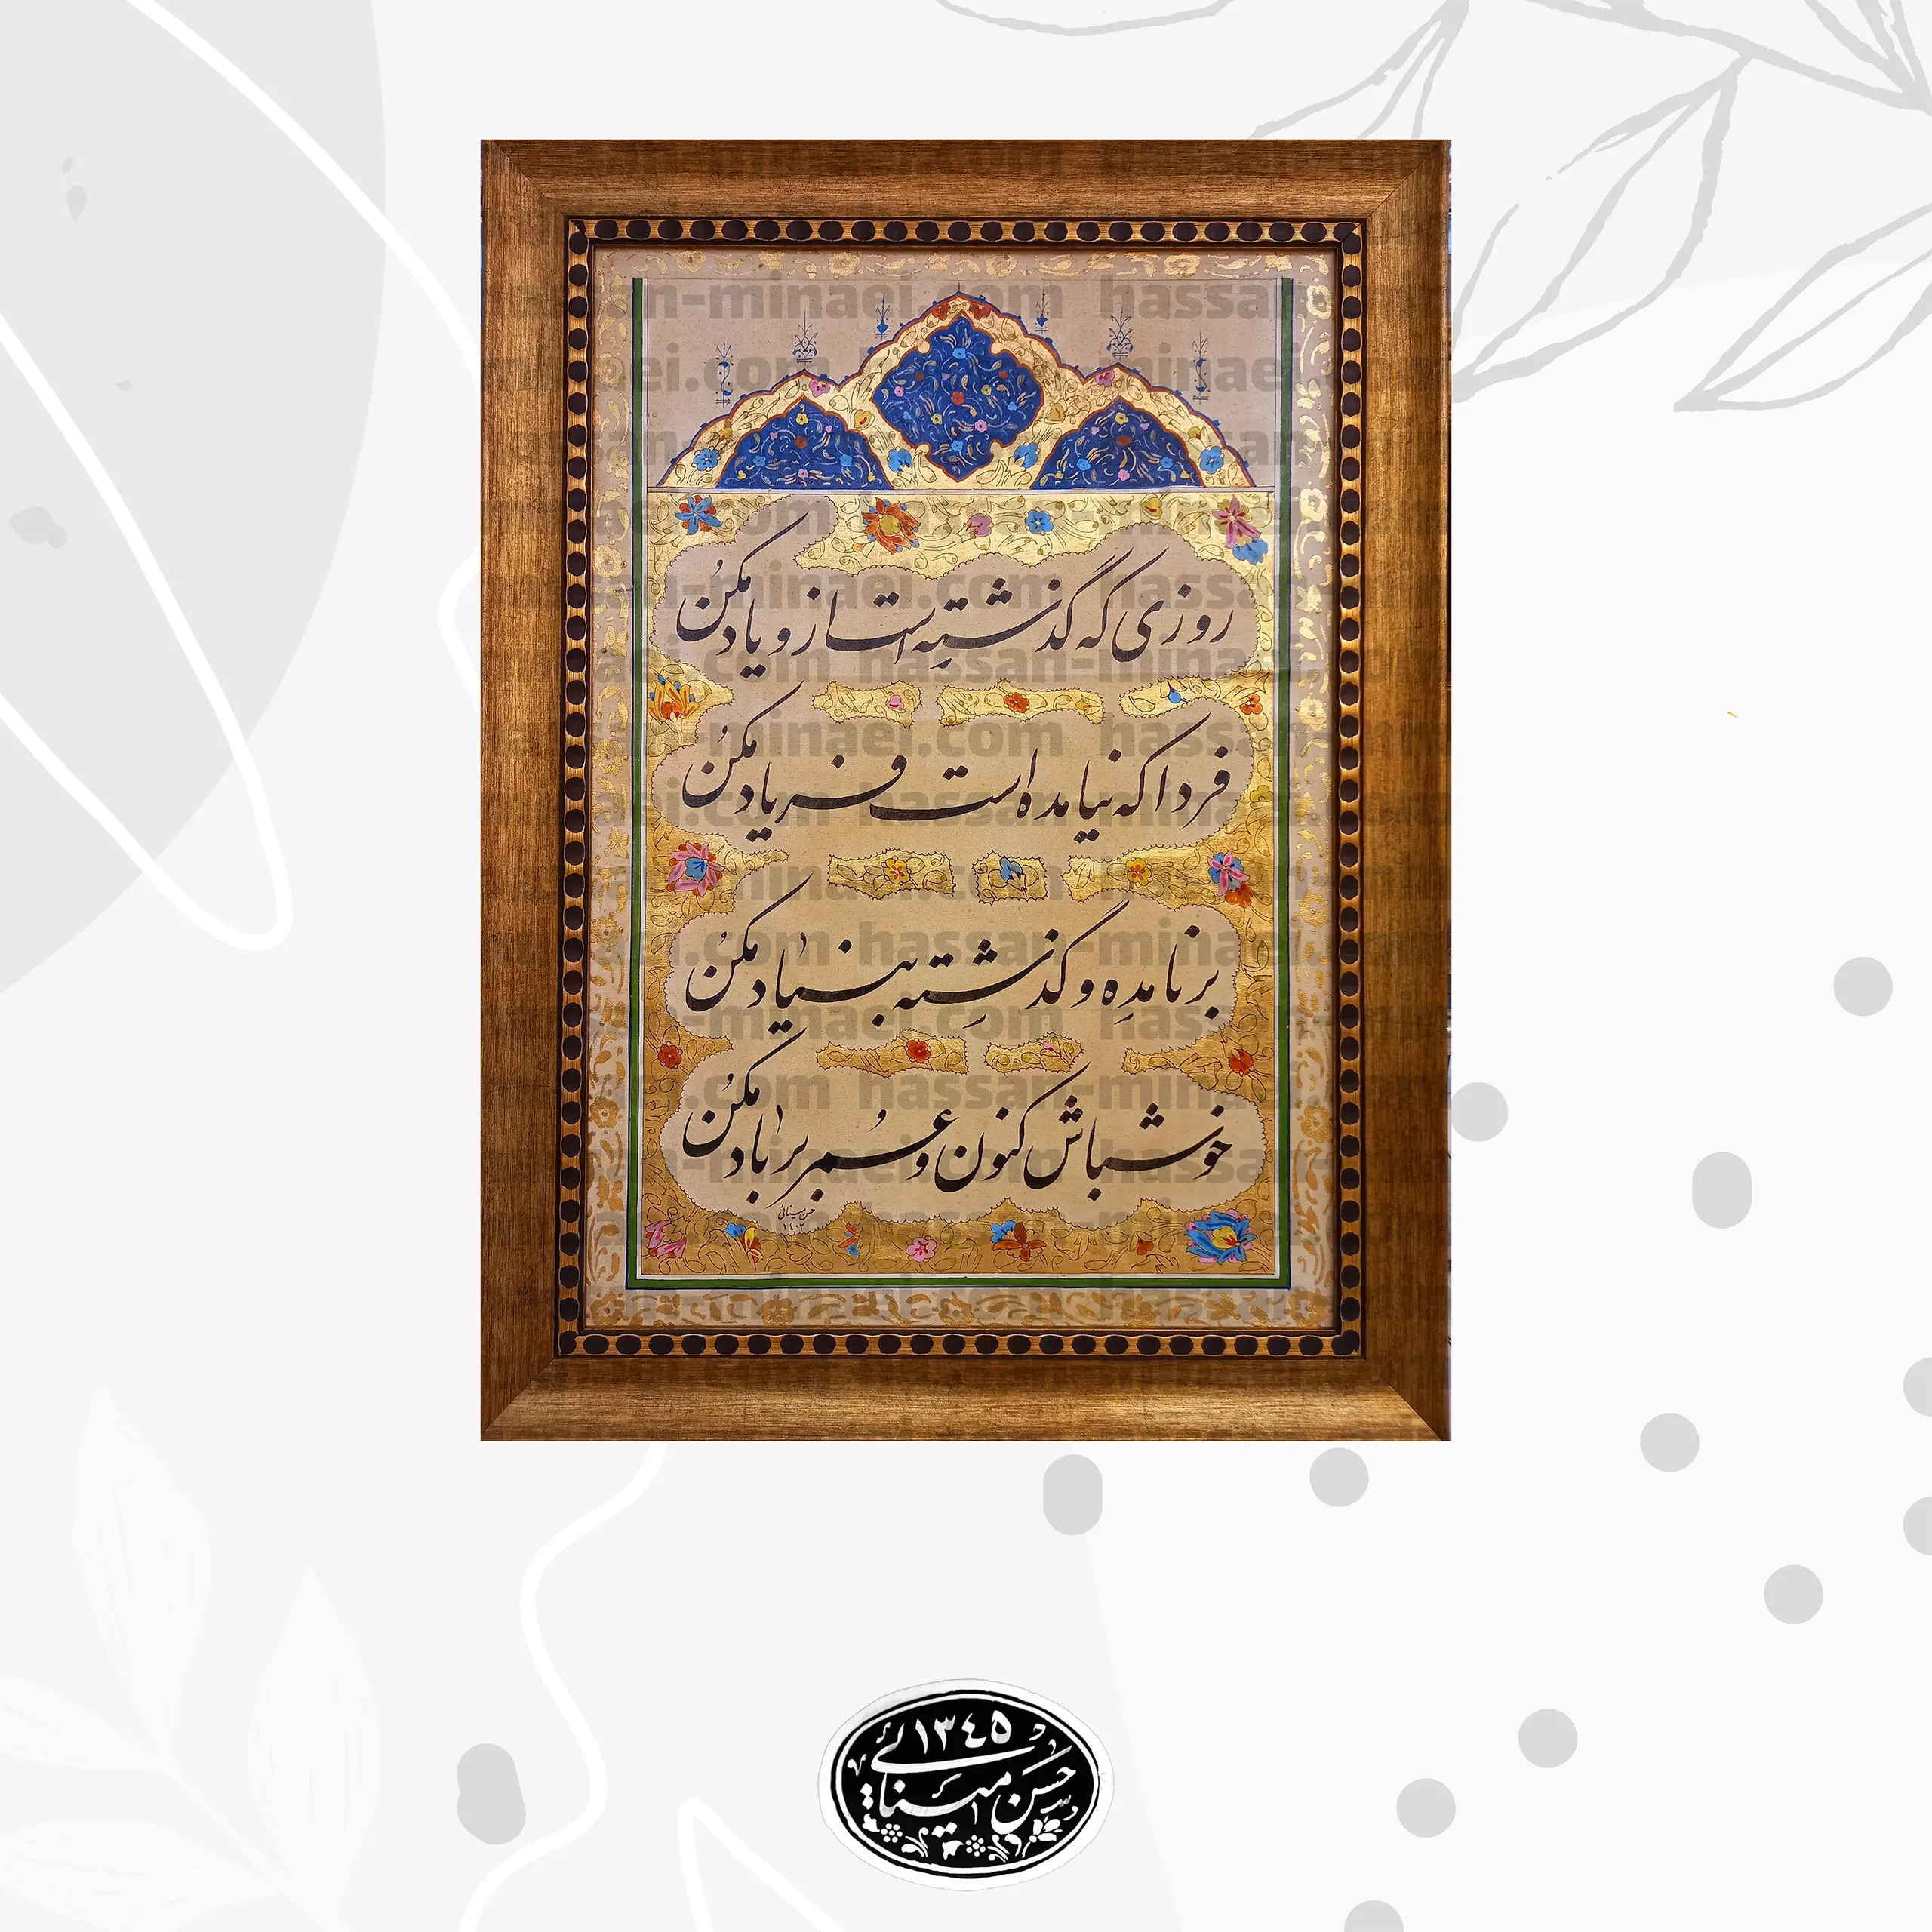 روزی که گذشته است ازو یاد مکن
فردا که نیامده است فریاد مکن
بر نامده و گذشته بنیاد مکن
خوش باش کنون و عمر بر باد مکن
حسن مینائی
۱۴۰۲
hassan-minaei.com
۱۳۴۵
حسن مینائی